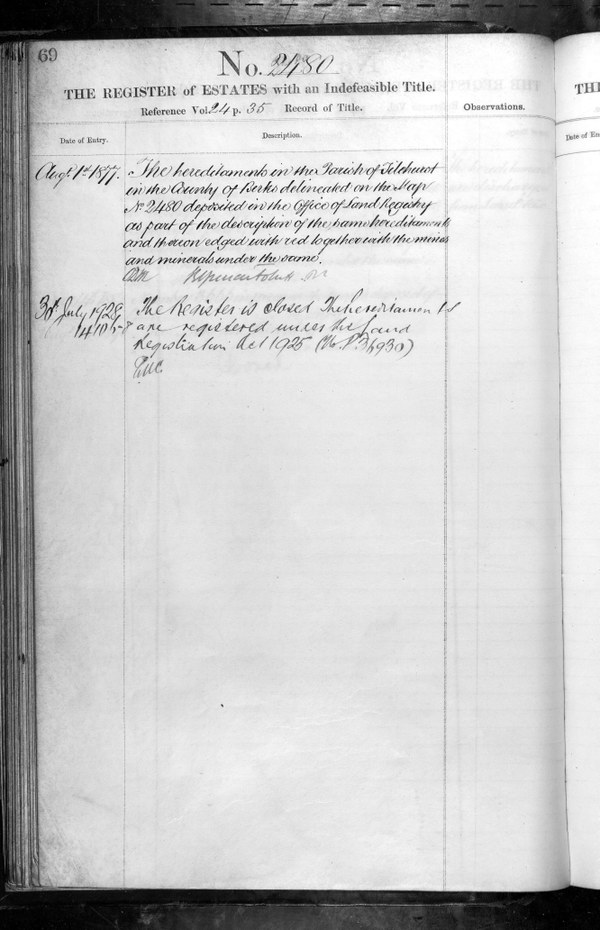 69
No. 2480
THE REGISTER of ESTATES with an Indefeasible Title.
Reference Vol. 24 p. 35 Record of Title.
Observations.
Date of Entry.
Description.
Augt. 1st 1877.
The hereditaments in the Parish of Tilehurst
in the County of Berks delineated on the Map
No 2480 deposited in the Office of Land Registry
as part of the description of the same hereditaments
and thereon edged with red together with the mines
and minerals under the same.
July 1929
The Register is closed The hereditaments
are registered under the Land
Registration Act 1925
THE
Date of En